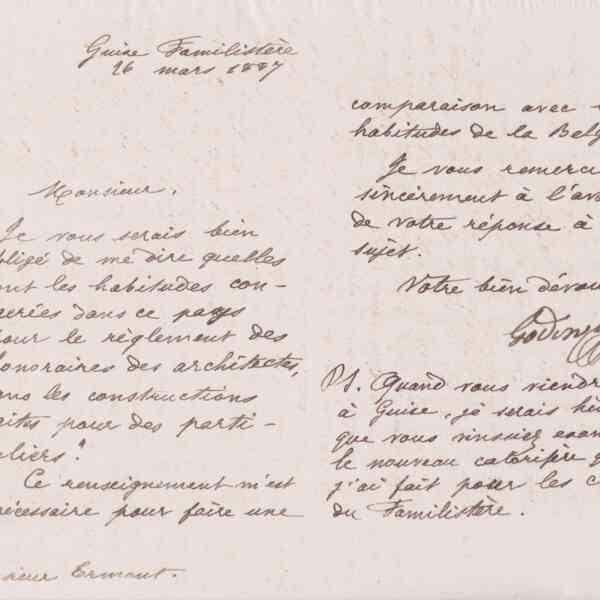 Guise Familistère
26 mars 1887
Monsieur,
Je vous serais bien
obligé de me dire quelles
sont les habitudes con-
sacrées dans ce pays
pour le règlement des
honoraires des architectes,
dans les constructions
faites pour des parti-
culiers?
Ce renseignement m'est
nécessaire pour faire une
Monsieur Ermant.
comparaison avec
habitudes de la Belg
Je vous remerci
sincèrement à l'ava
de votre réponse à
sujet.
Votre bien dévou
Godin
PS. Quand vous viendre
à Guise, je serais heu
que vous vinssiez exam
le nouveau calorifère q
j'ai fait pour les c
du Familistère.